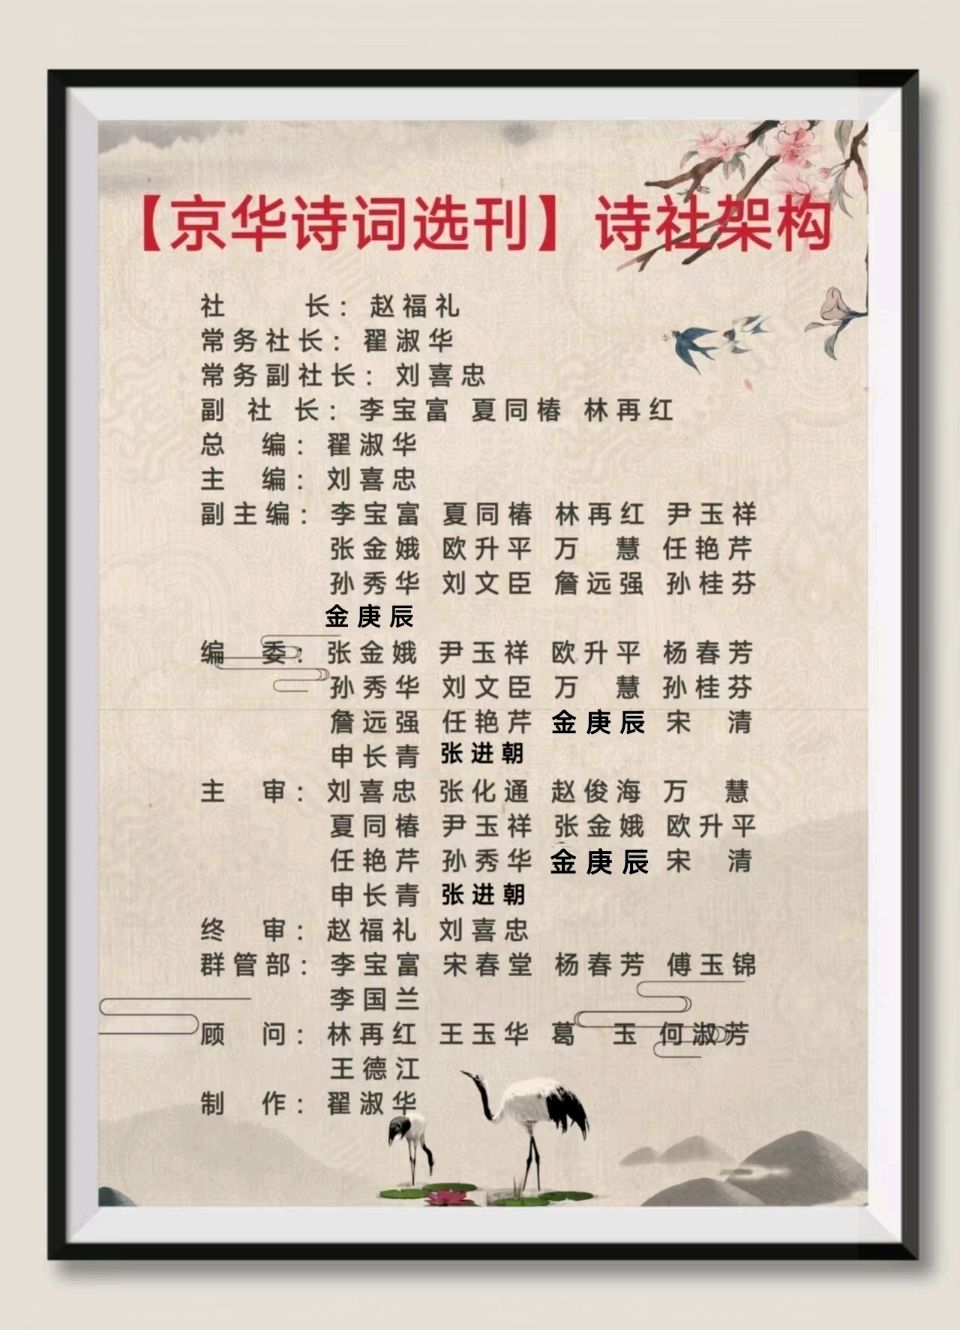 【京华诗词选刊】诗社架构
社 长：赵福礼
常务社长：翟淑华
常务副社长：刘喜忠
副 社 长：李宝富 夏同椿 林再红
总 编：翟淑华
主 编：刘喜忠
副主编：李宝富 夏同椿 林再红 尹玉祥
张金娥 欧升平 万 慧 任艳芹
孙秀华 刘文臣 詹远强 孙桂芬
金庚辰
编 委：张金娥 尹玉祥 欧升平 杨春芳
孙秀华 刘文臣 万 慧 孙桂芬
詹远强 任艳芹 金庚辰 宋 清
申长青 张进朝
主 审：刘喜忠 张化通 赵俊海 万 慧
夏同椿 尹玉祥 张金娥 欧升平
任艳芹 孙秀华 金庚辰 宋 清
申长青 张进朝
终 审：赵福礼 刘喜忠
群管部：李宝富 宋春堂 杨春芳 傅玉锦
李国兰
顾 问：林再红 王玉华 葛 玉 何淑芳
王德江
制 作：翟淑华